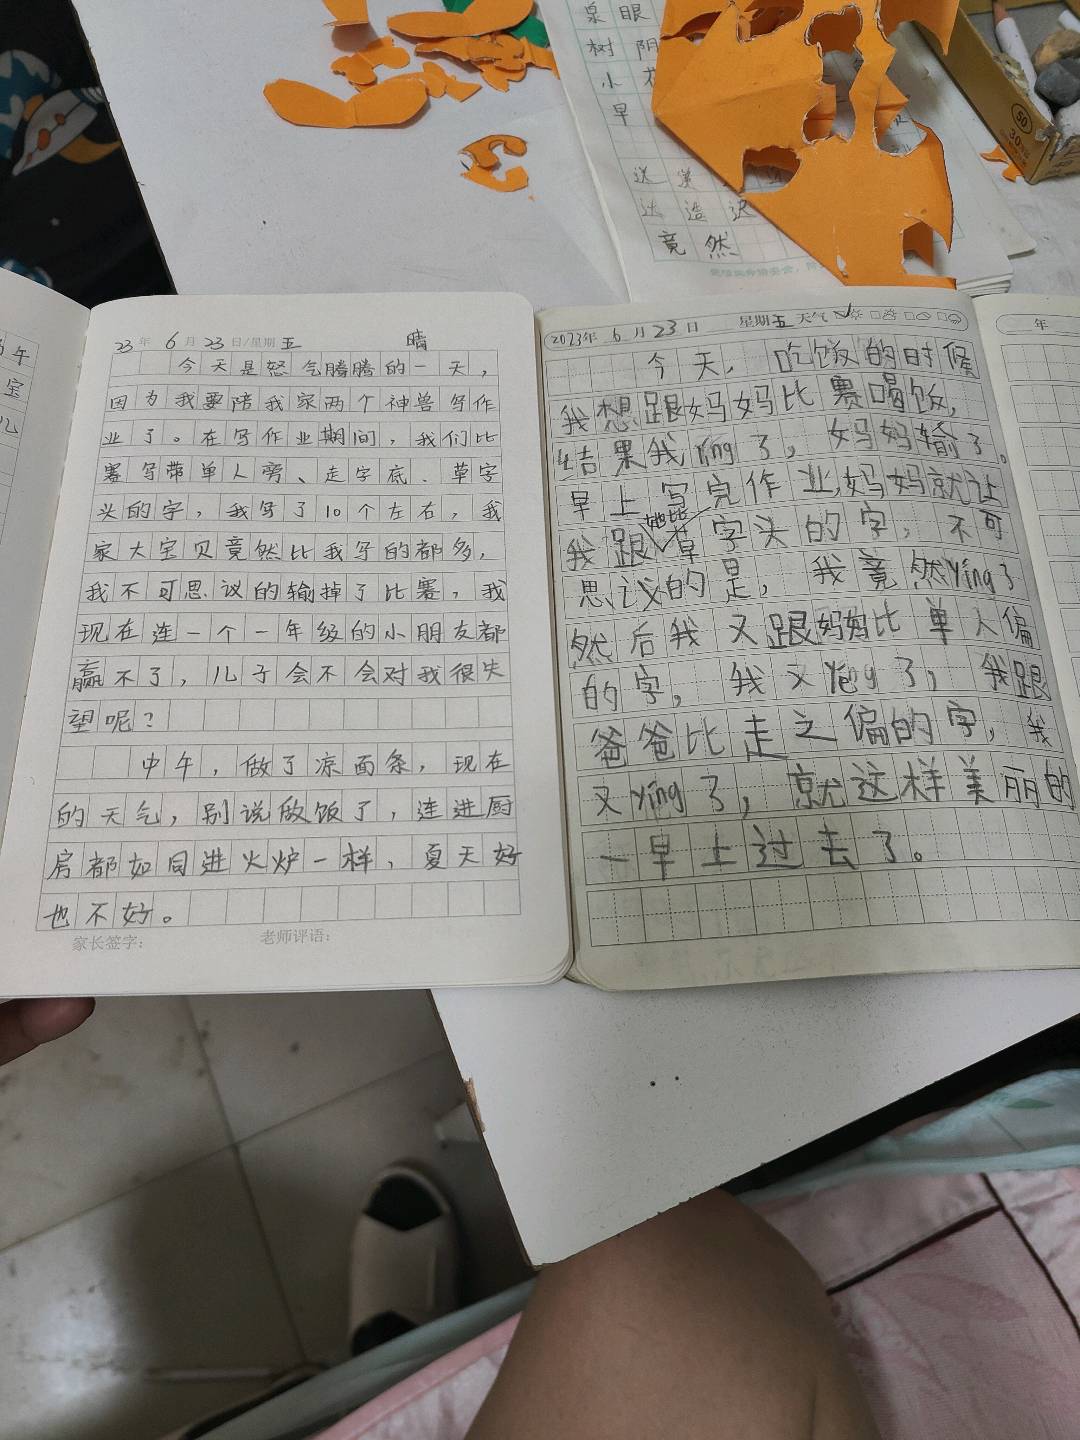 泉 眼
树 阴
小
早
送
达 造 迟
竟 然
50
30
午
宝
儿
23年 6月 23日/星期 五 晴
今天是怒气腾腾的一天，
因为我要陪我家两个神兽写作
业了。在写作业期间，我们比
赛写带单人旁、走字底、草字
头的字，我写了10个左右，我
家大宝贝竟然比我写的都多，
我不可思议的输掉了比赛，我
现在连一个一年级的小朋友都
赢不了，儿子会不会对我很失
望呢？
中午，做了凉面条，现在
的天气，别说做饭了，连进厨
房都如同进火炉一样，夏天好
也不好。
家长签字： 老师评语：
2023年 6月 23日 星期五 天气
今天，吃饭的时候
我想跟妈妈比赛喝饭，
结果我yíng了，妈妈输了。
早上写完作业，妈妈就让
我跟她比草字头的字，不可
思议的是，我竟然yíng了
然后我又跟妈妈比单人偏
的字，我又yíng了，我跟
爸爸比走之偏的字，我
又yíng了，就这样美丽的
一早上过去了。
年